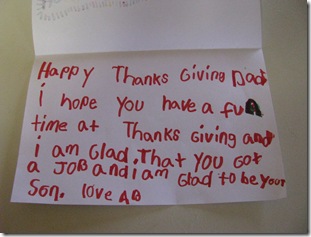 Happy Thanks Giving Dad
i hope You have a fun
time at Thanks Giving and
i am Glad. That You Got
a JOB and i am Glad to be Your
Son. love AB